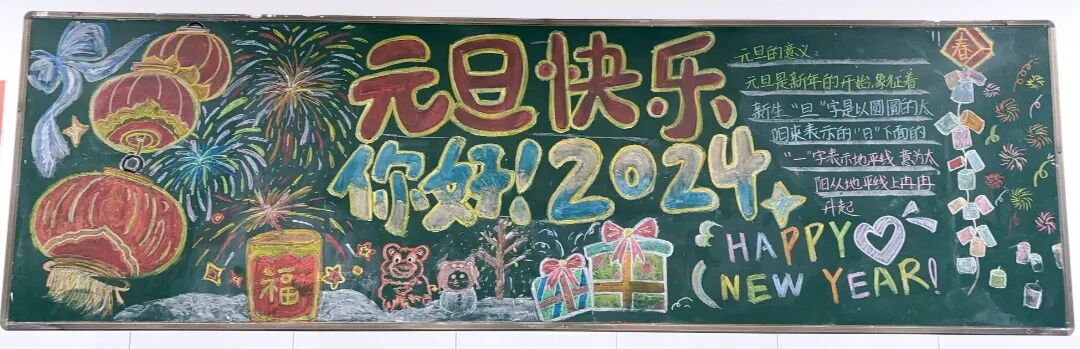 元旦快乐
你好!2024
福
HAPPY
NEW YEAR!
元旦的意义:
元旦是新年的开始,象征着
新生"旦"字是以圆圆的太
阳来表示的"日"下面的
"一"字表示地平线 意为太
阳从地平线上冉冉
升起
春